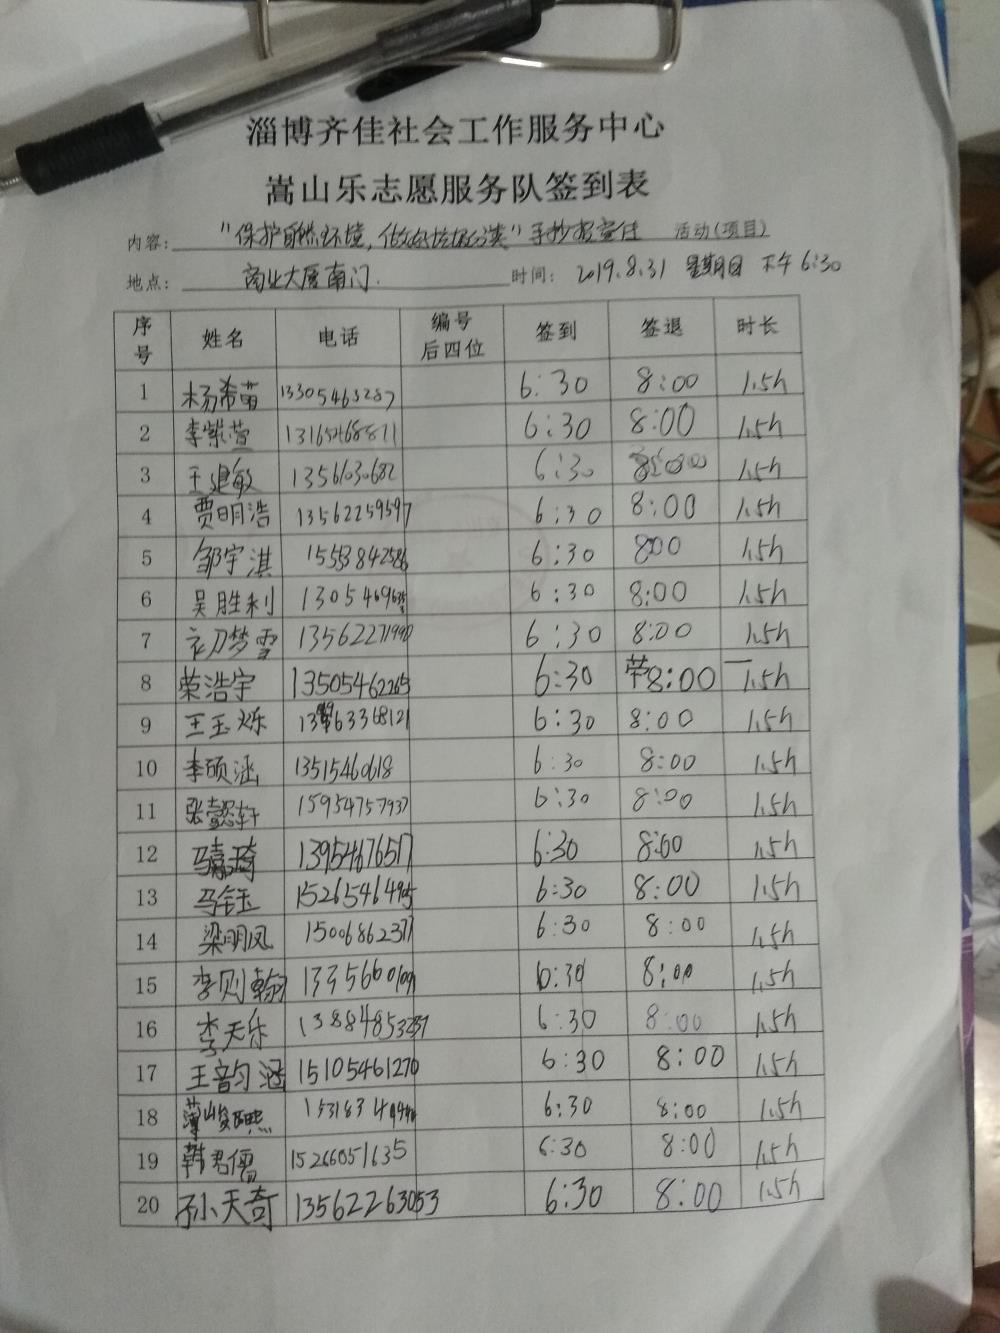 淄博齐佳社会工作服务中心
嵩山乐志愿服务队签到表
内容: "保护自然环境,做好垃圾分类"手抄报宣传 活动(项目)
地点: 商业大厦南门. 时间: 2019.8.31 星期 下午6:30
序号 姓名 电话 编号后四位 签到 签退 时长
1 杨希苗 13305463287 6:30 8:00 1.5h
2 李紫萱 13165468811 6:30 8:00 1.5h
3 王建敏 1356103068 6:30 8:00 1.5h
4 贾明浩 13562259597 6:30 8:00 1.5h
5 邹宇淇 15553842586 6:30 800 1.5h
6 吴胜利 6:30 8:00 1.5h
7 初梦雪 6:30 8:00 1.5h
8 荣浩宇 13505462265 6:30 8:00 1.5h
9 王玉烁 6:30 8:00 1.5h
10 李硕涵 13515460618 6:30 8:00 1.5h
11 张懿轩 15954757937 6:30 8:00 1.5h
12 马嘉琦 13954676517 6:30 8:00 1.5h
13 马钰 6:30 8:00 1.5h
14 梁明凤 15006862377 6:30 8:00 1.5h
15 李则翰 6:30 8:00 1.5h
16 李天乐 13884853237 6:30 8:00 1.5h
17 王韵涵 15105461270 6:30 8:00 1.5h
18 薄峻熙 6:30 8:00 1.5h
19 韩君儒 15266051635 6:30 8:00 1.5h
20 孙天奇 13562263053 6:30 8:00 1.5h